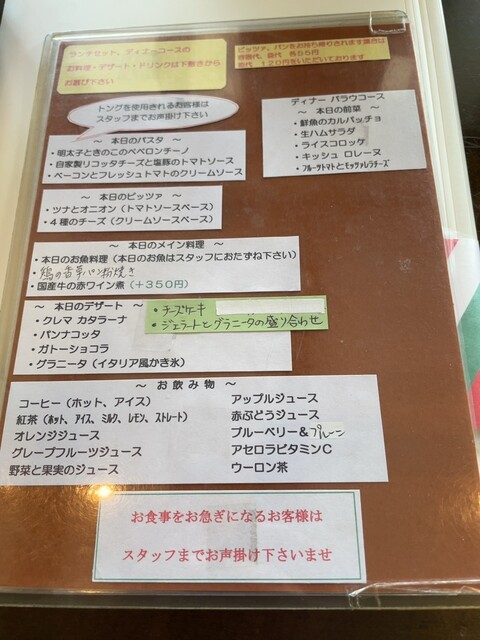 ランチセット、ディナーコースの
お料理・デザート・ドリンクは下敷きから
お選び下さい
ピッツァ、パンをお持ち帰りされます場合は
容器代、袋代 各55円
箱代 120円をいただいております
トングを使用されるお客様は
スタッフまでお声掛け下さい
～ 本日のパスタ ～
・明太子ときのこのペペロンチーノ
・自家製リコッタチーズと塩豚のトマトソース
・ベーコンとフレッシュトマトのクリームソース
ディナー パラウコース
～ 本日の前菜 ～
・鮮魚のカルパッチョ
・生ハムサラダ
・ライスコロッケ
・キッシュ ロレーヌ
・フルーツトマトとモッツァレラチーズ
～ 本日のピッツァ ～
・ツナとオニオン（トマトソースベース）
・4種のチーズ（クリームソースベース）
～ 本日のメイン料理 ～
・本日のお魚料理（本日のお魚はスタッフにおたずね下さい）
・鶏の香草パン粉焼き
・国産牛の赤ワイン煮（＋350円）
～ 本日のデザート ～
・クレマ カタラーナ
・パンナコッタ
・ガトーショコラ
・グラニータ（イタリア風かき氷）
・チーズケーキ
・ジェラートとグラニータの盛り合わせ
～ お飲み物 ～
コーヒー（ホット、アイス）
紅茶（ホット、アイス、ミルク、レモン、ストレート）
オレンジジュース
グレープフルーツジュース
野菜と果実のジュース
アップルジュース
赤ぶどうジュース
ブルーベリー&プルーン
アセロラビタミンC
ウーロン茶
お食事をお急ぎになるお客様は
スタッフまでお声掛け下さいませ